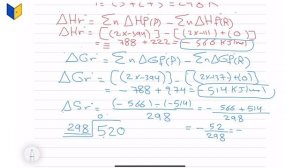 ΔHr° = Σn ΔHf(P) - Σn ΔHf(R)
ΔHr = [(2x-394)] - [(2x-111) + (0)]
= - 788 + 222 = - 566 KJ/mol
ΔGr° = Σn ΔGf(P) - Σn ΔGf(R)
= [(2x-394)] - [(2x-137) + (0)]
= - 788 + 274 = - 514 KJ/mol
ΔSr° = (-566) - (-514) / 298 = - 566 + 514 / 298
0
298 520
= - 52 / 298 = -